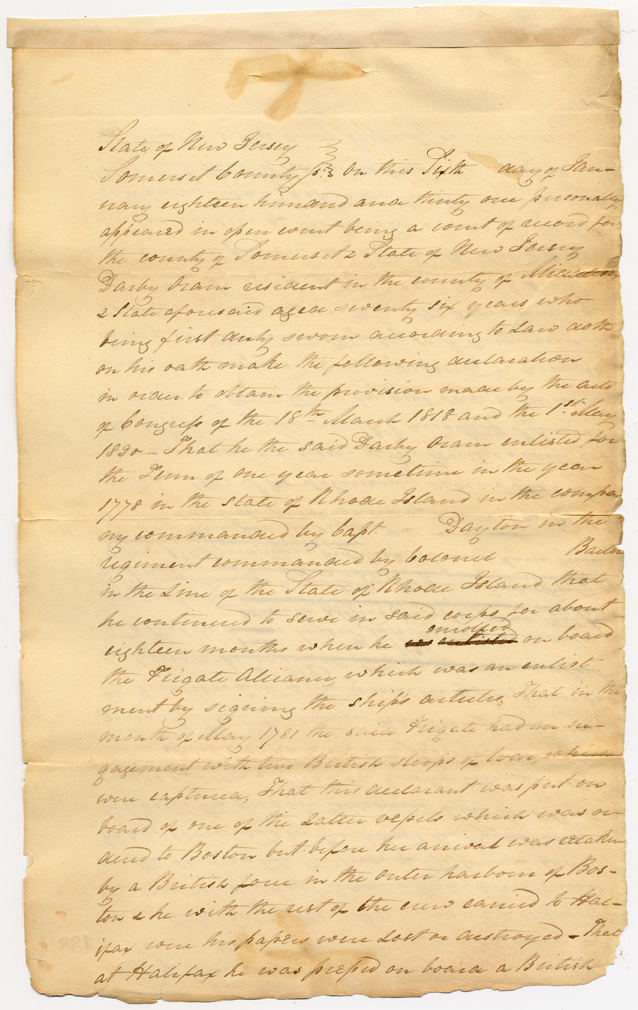 State of New Jersey
Somerset County ss. On this Sixth day of Jan-
uary eighteen hundred and thirty one personally
appeared in open court being a court of record for
the county of Somerset & State of New Jersey
Darby Oram resident in the county of
& State aforesaid aged seventy six years who
being first duly sworn according to Law doth
on his oath make the following declaration
in order to obtain the provision made by the acts
of Congress of the 18th March 1818 and the 1st May
1820 – That he the said Darby Oram enlisted for
the Term of one year sometime in the year
1778 in the state of Rhode Island in the compa
ny commanded by Capt. Dayton in the
regiment commanded by Colonel
in the Line of the State of Rhode Island that
he continued to serve in said corps for about
eighteen months when he enrolled on board
the Frigate Alliance, which was an enlist
ment by signing the ships articles, That in the
month of May 1781 the said Frigate had an en-
gagement with two British sloops of war, which
were captured, That this declarant was put on
board of one of the Latter vessels which was or
dered to Boston but before her arrival was retaken
by a British force in the outer harbour of Bos-
ton & he with the rest of the crew carried to Hal-
ifax were his papers were Lost or destroyed – That
at Halifax he was pressed on board a British